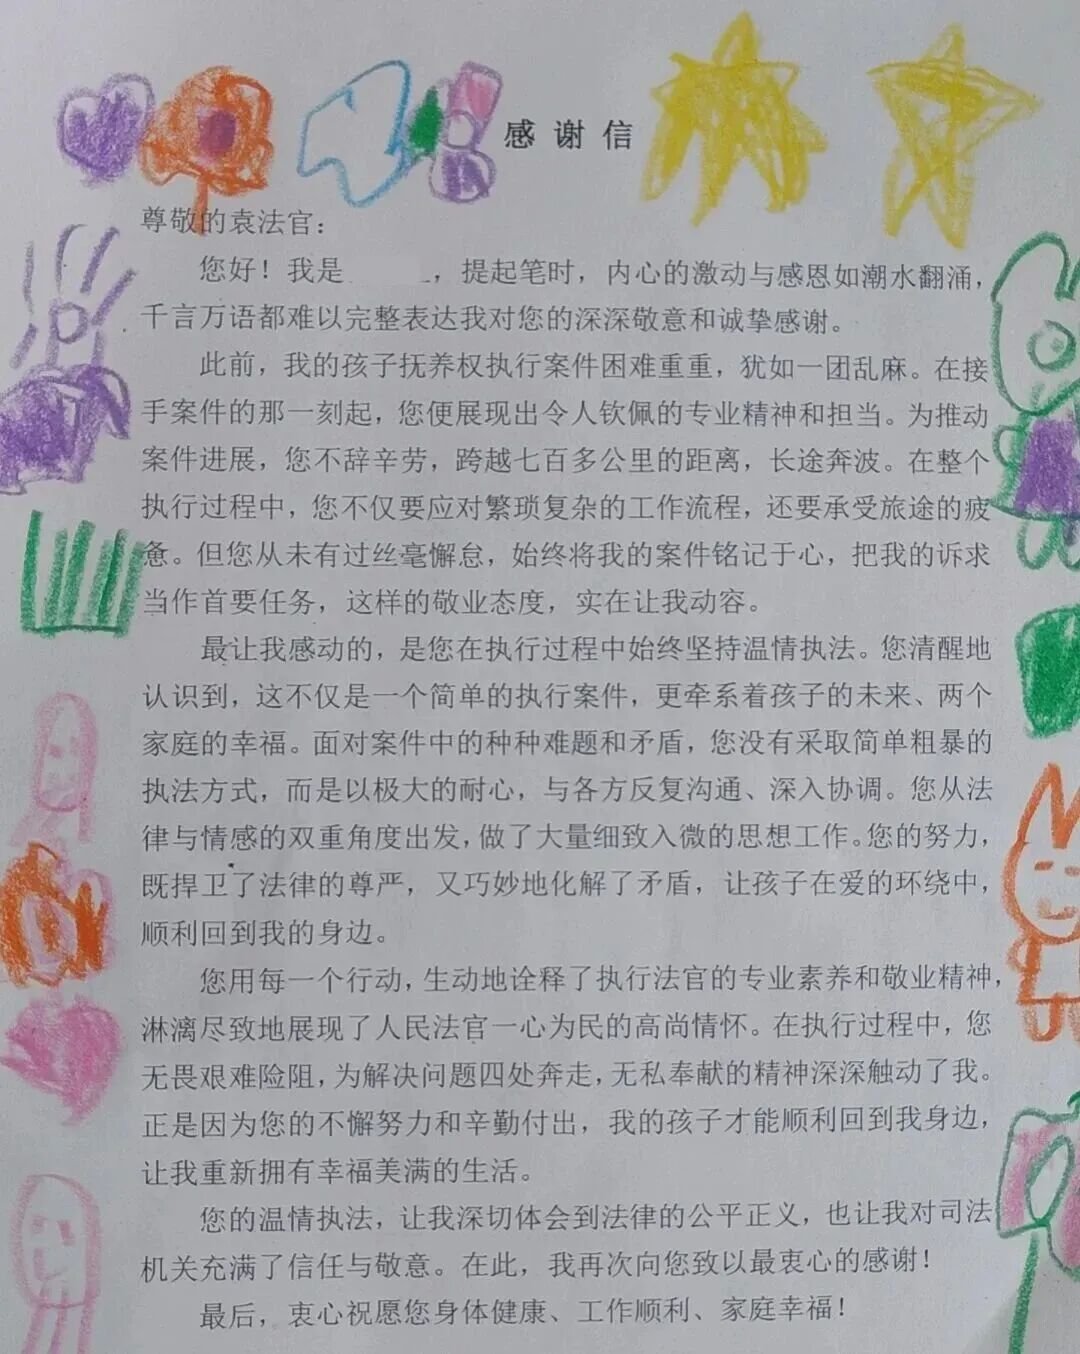 感谢信
尊敬的袁法官：
您好！我是      ，提起笔时，内心的激动与感恩如潮水翻涌，
千言万语都难以完整表达我对您的深深敬意和诚挚感谢。
此前，我的孩子抚养权执行案件困难重重，犹如一团乱麻。在接
手案件的那一刻起，您便展现出令人钦佩的专业精神和担当。为推动
案件进展，您不辞辛劳，跨越七百多公里的距离，长途奔波。在整个
执行过程中，您不仅要应对繁琐复杂的工作流程，还要承受旅途的疲
惫。但您从未有过丝毫懈怠，始终将我的案件铭记于心，把我的诉求
当作首要任务，这样的敬业态度，实在让我动容。
最让我感动的，是您在执行过程中始终坚持温情执法。您清醒地
认识到，这不仅是一个简单的执行案件，更牵系着孩子的未来、两个
家庭的幸福。面对案件中的种种难题和矛盾，您没有采取简单粗暴的
执法方式，而是以极大的耐心，与各方反复沟通、深入协调。您从法
律与情感的双重角度出发，做了大量细致入微的思想工作。您的努力，
既捍卫了法律的尊严，又巧妙地化解了矛盾，让孩子在爱的环绕中，
顺利回到我的身边。
您用每一个行动，生动地诠释了执行法官的专业素养和敬业精神，
淋漓尽致地展现了人民法官一心为民的高尚情怀。在执行过程中，您
无畏艰难险阻，为解决问题四处奔走，无私奉献的精神深深触动了我。
正是因为您的不懈努力和辛勤付出，我的孩子才能顺利回到我身边，
让我重新拥有幸福美满的生活。
您的温情执法，让我深切体会到法律的公平正义，也让我对司法
机关充满了信任与敬意。在此，我再次向您致以最衷心的感谢！
最后，衷心祝愿您身体健康、工作顺利、家庭幸福！